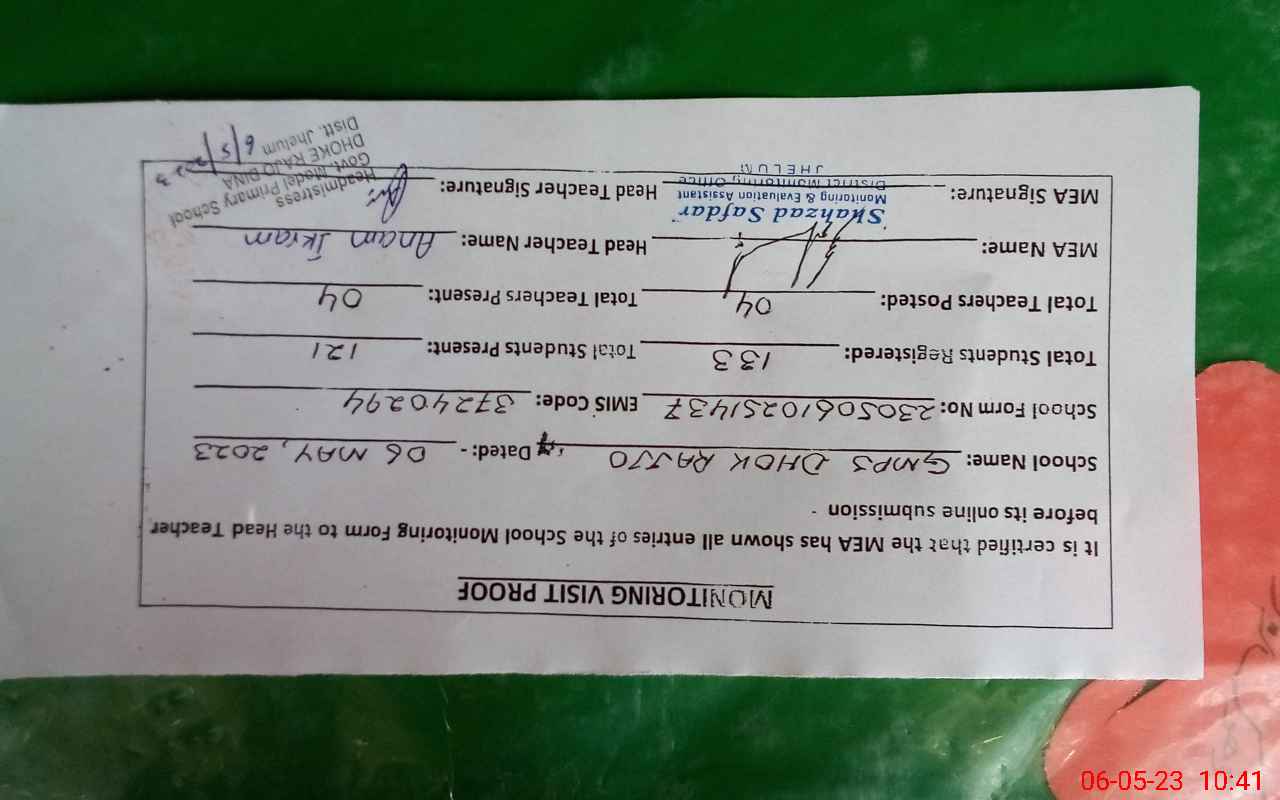 MONITORING VISIT PROOF
It is certified that the MEA has shown all entries of the School Monitoring Form to the Head Teacher
before its online submission -
School Name: GMPS DHOK RAJJO Dated:- 06 MAY, 2023
School Form No: 23050610251437 EMIS Code: 37240294
Total Students Registered: 133 Total Students Present: 121
Total Teachers Posted: 04 Total Teachers Present: 04
MEA Name: Head Teacher Name: Anam Ikram
MEA Signature: Head Teacher Signature:
Shahzad Safdar
Monitoring & Evaluation Assistant
District Monitoring Office
JHELUM
Headmistress
Govt. Model Primary School
DHOKE RAJO DINA
Distt. Jhelum
6/5/2023
06-05-23 10:41